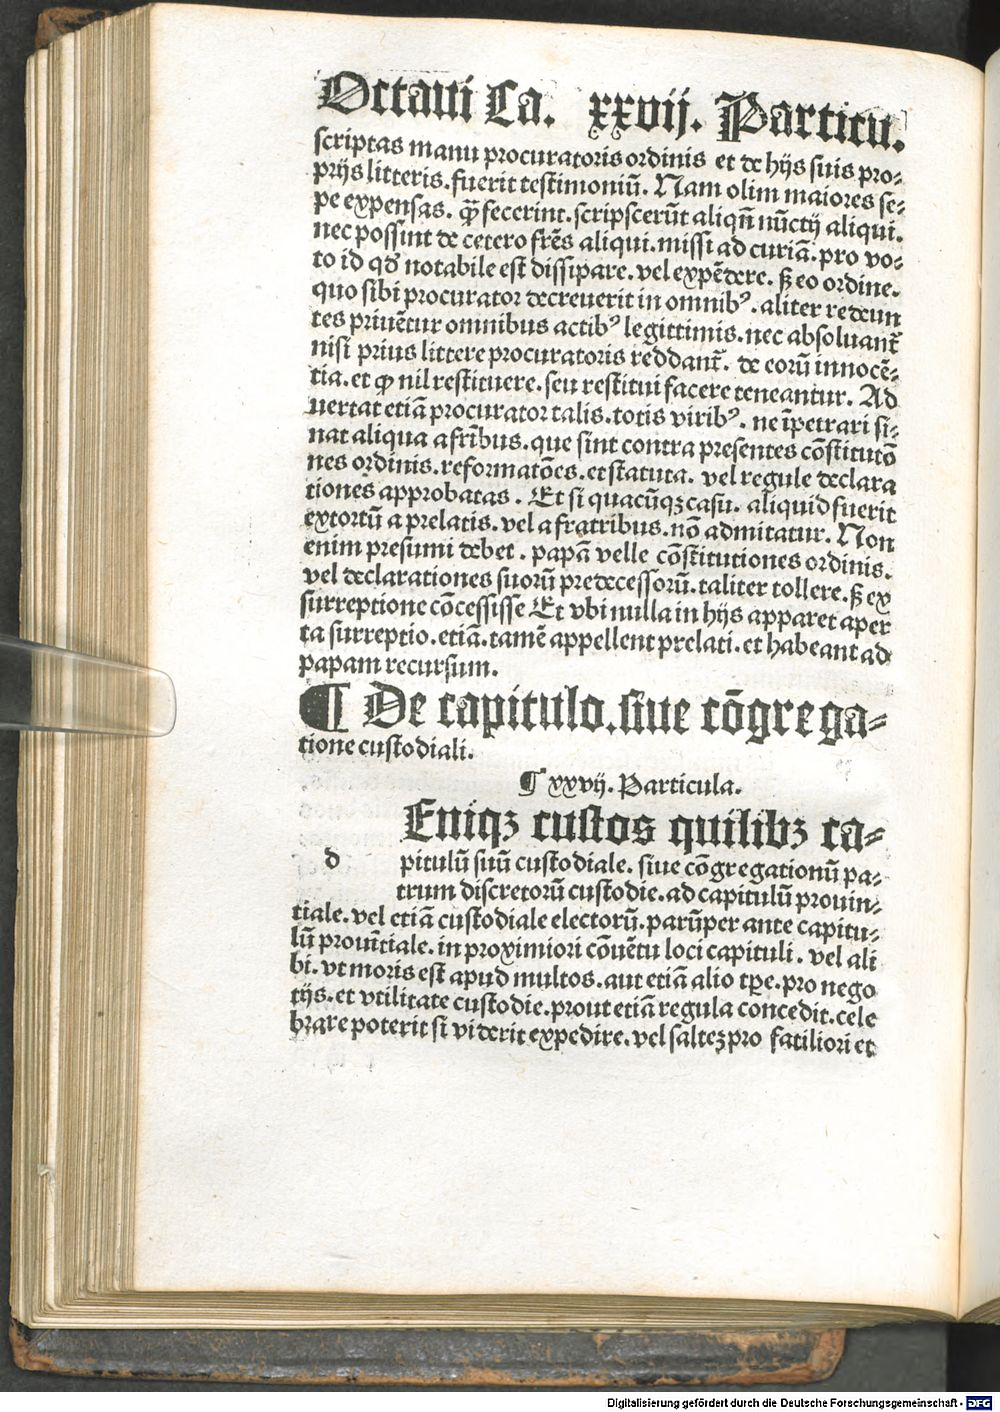 Octaui Ca. xxvij. Particu.
scriptas manu procuratoris ordinis et de hijs suis pro-
prijs litteris. fuerit testimoniũ. Nam olim maiores se-
pe expensas. ꝙ̃ fecerint. scripserũt aliqñ nũctij aliqui.
nec possint de cetero frẽs aliqui. missi ad curiã. pro vo-
to id qď notabile est dissipare. vel expẽdere. ſꝫ eo ordine.
quo sibi procurator decreuerit in omnibꝰ. aliter redeun
tes priuẽtur omnibus actibꝰ legittimis. nec absoluant̃
nisi prius littere procuratoris reddant̃. de eorũ innocẽ-
tia. et ꝙ nil restituere. seu restitui facere teneantur. Ad
uertat etiã procurator talis. totis viribꝰ. ne ĩpetrari si-
nat aliqua a frĩbus. que sint contra presentes cõstitutõ
nes ordinis. reformatões. et statuta. vel regule declara
tiones approbatas. Et si quacũqꝫ casu. aliquid fuerit
extortũ a prelatis. vel a fratribus. nõ admitatur. Non
enim presumi debet. papã velle cõstitutiones ordinis.
vel declarationes suorũ predecessorũ. taliter tollere. ſꝫ ex
surreptione cõcessisse Et vbi nulla in hijs apparet aper
ta surreptio. etiã. tamẽ appellent prelati. et habeant ad
papam recursum.
¶ De capitulo. siue cõgrega-
tione custodiali.
¶ xxvij. Particula.
Eniqꝫ custos quilibꝫ ca-
d
pitulũ suũ custodiale. siue cõgregationũ pa-
trum discretorũ custodie. ad capitulũ prouin-
tiale. vel etiã custodiale electorũ. parũper ante capitu-
lũ prouĩtiale. in proximiori cõuẽtu loci capituli. vel ali
bi. vt moris est apud multos. aut etiã alio tꝑe. pro nego
tijs. et vtilitate custodie. prout etiã regula concedit. cele
brare poterit si viderit expedire. vel salteꝫ pro faciliori et
Digitalisierung gefördert durch die Deutsche Forschungsgemeinschaft - DFG